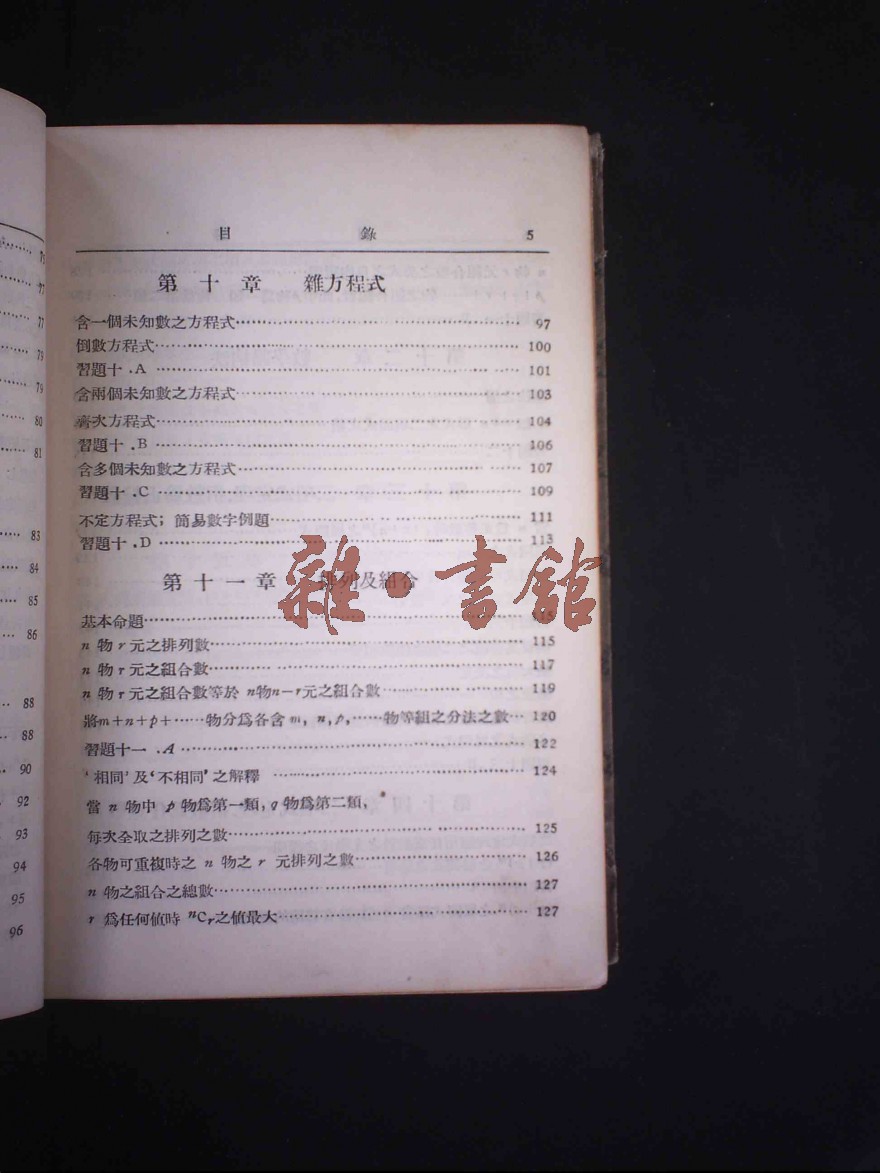 75
77
77
79
79
80
81
83
84
85
86
88
88
90
92
93
94
95
96
目 錄 5
第十章 雜方程式
含一個未知數之方程式 97
倒數方程式 100
習題十.A 101
含兩個未知數之方程式 103
齊次方程式 104
習題十.B 106
含多個未知數之方程式 107
習題十.C 109
不定方程式；簡易數字例題 111
習題十.D 113
雜·書館
第十一章 排列及組合
基本命題 115
n 物 r 元之排列數 115
n 物 r 元之組合數 117
n 物 r 元之組合數等於 n物n－r元之組合數 119
將m＋n＋p＋……物分爲各含 m, n, p,……物等組之分法之數 120
習題十一.A 122
‘相同’及‘不相同’之解釋 124
當 n 物中 p 物爲第一類，q 物爲第二類，
每次全取之排列之數 125
各物可重複時之 n 物之 r 元排列之數 126
n 物之組合之總數 127
r 爲任何値時 ⁿCᵣ之値最大 127